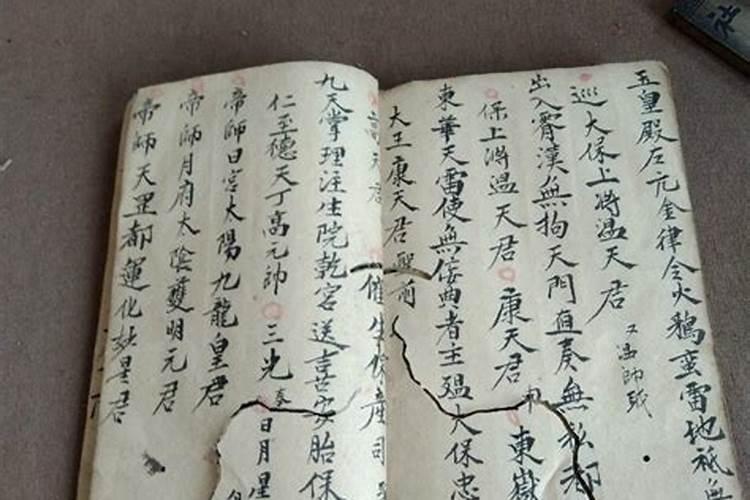 五皇殿左元金律令火鴉蛮雷地祇無
巡大保上將温天君
又温帥祇
出入霄漢無拘天門直奏無私都
保上將温天君 康天君 東嶽
東華天雷使無佞典者主瘟大保忠
大王康天君聖前
高天君 催生保產司
九天掌理注生院乾宮送喜安胎保
仁至德天丁高元帥 三光 奏日月星
帝師日宮太陽九龍皇君
帝師月府太陰雙明元君
帝師天罡都運化紋星君
社